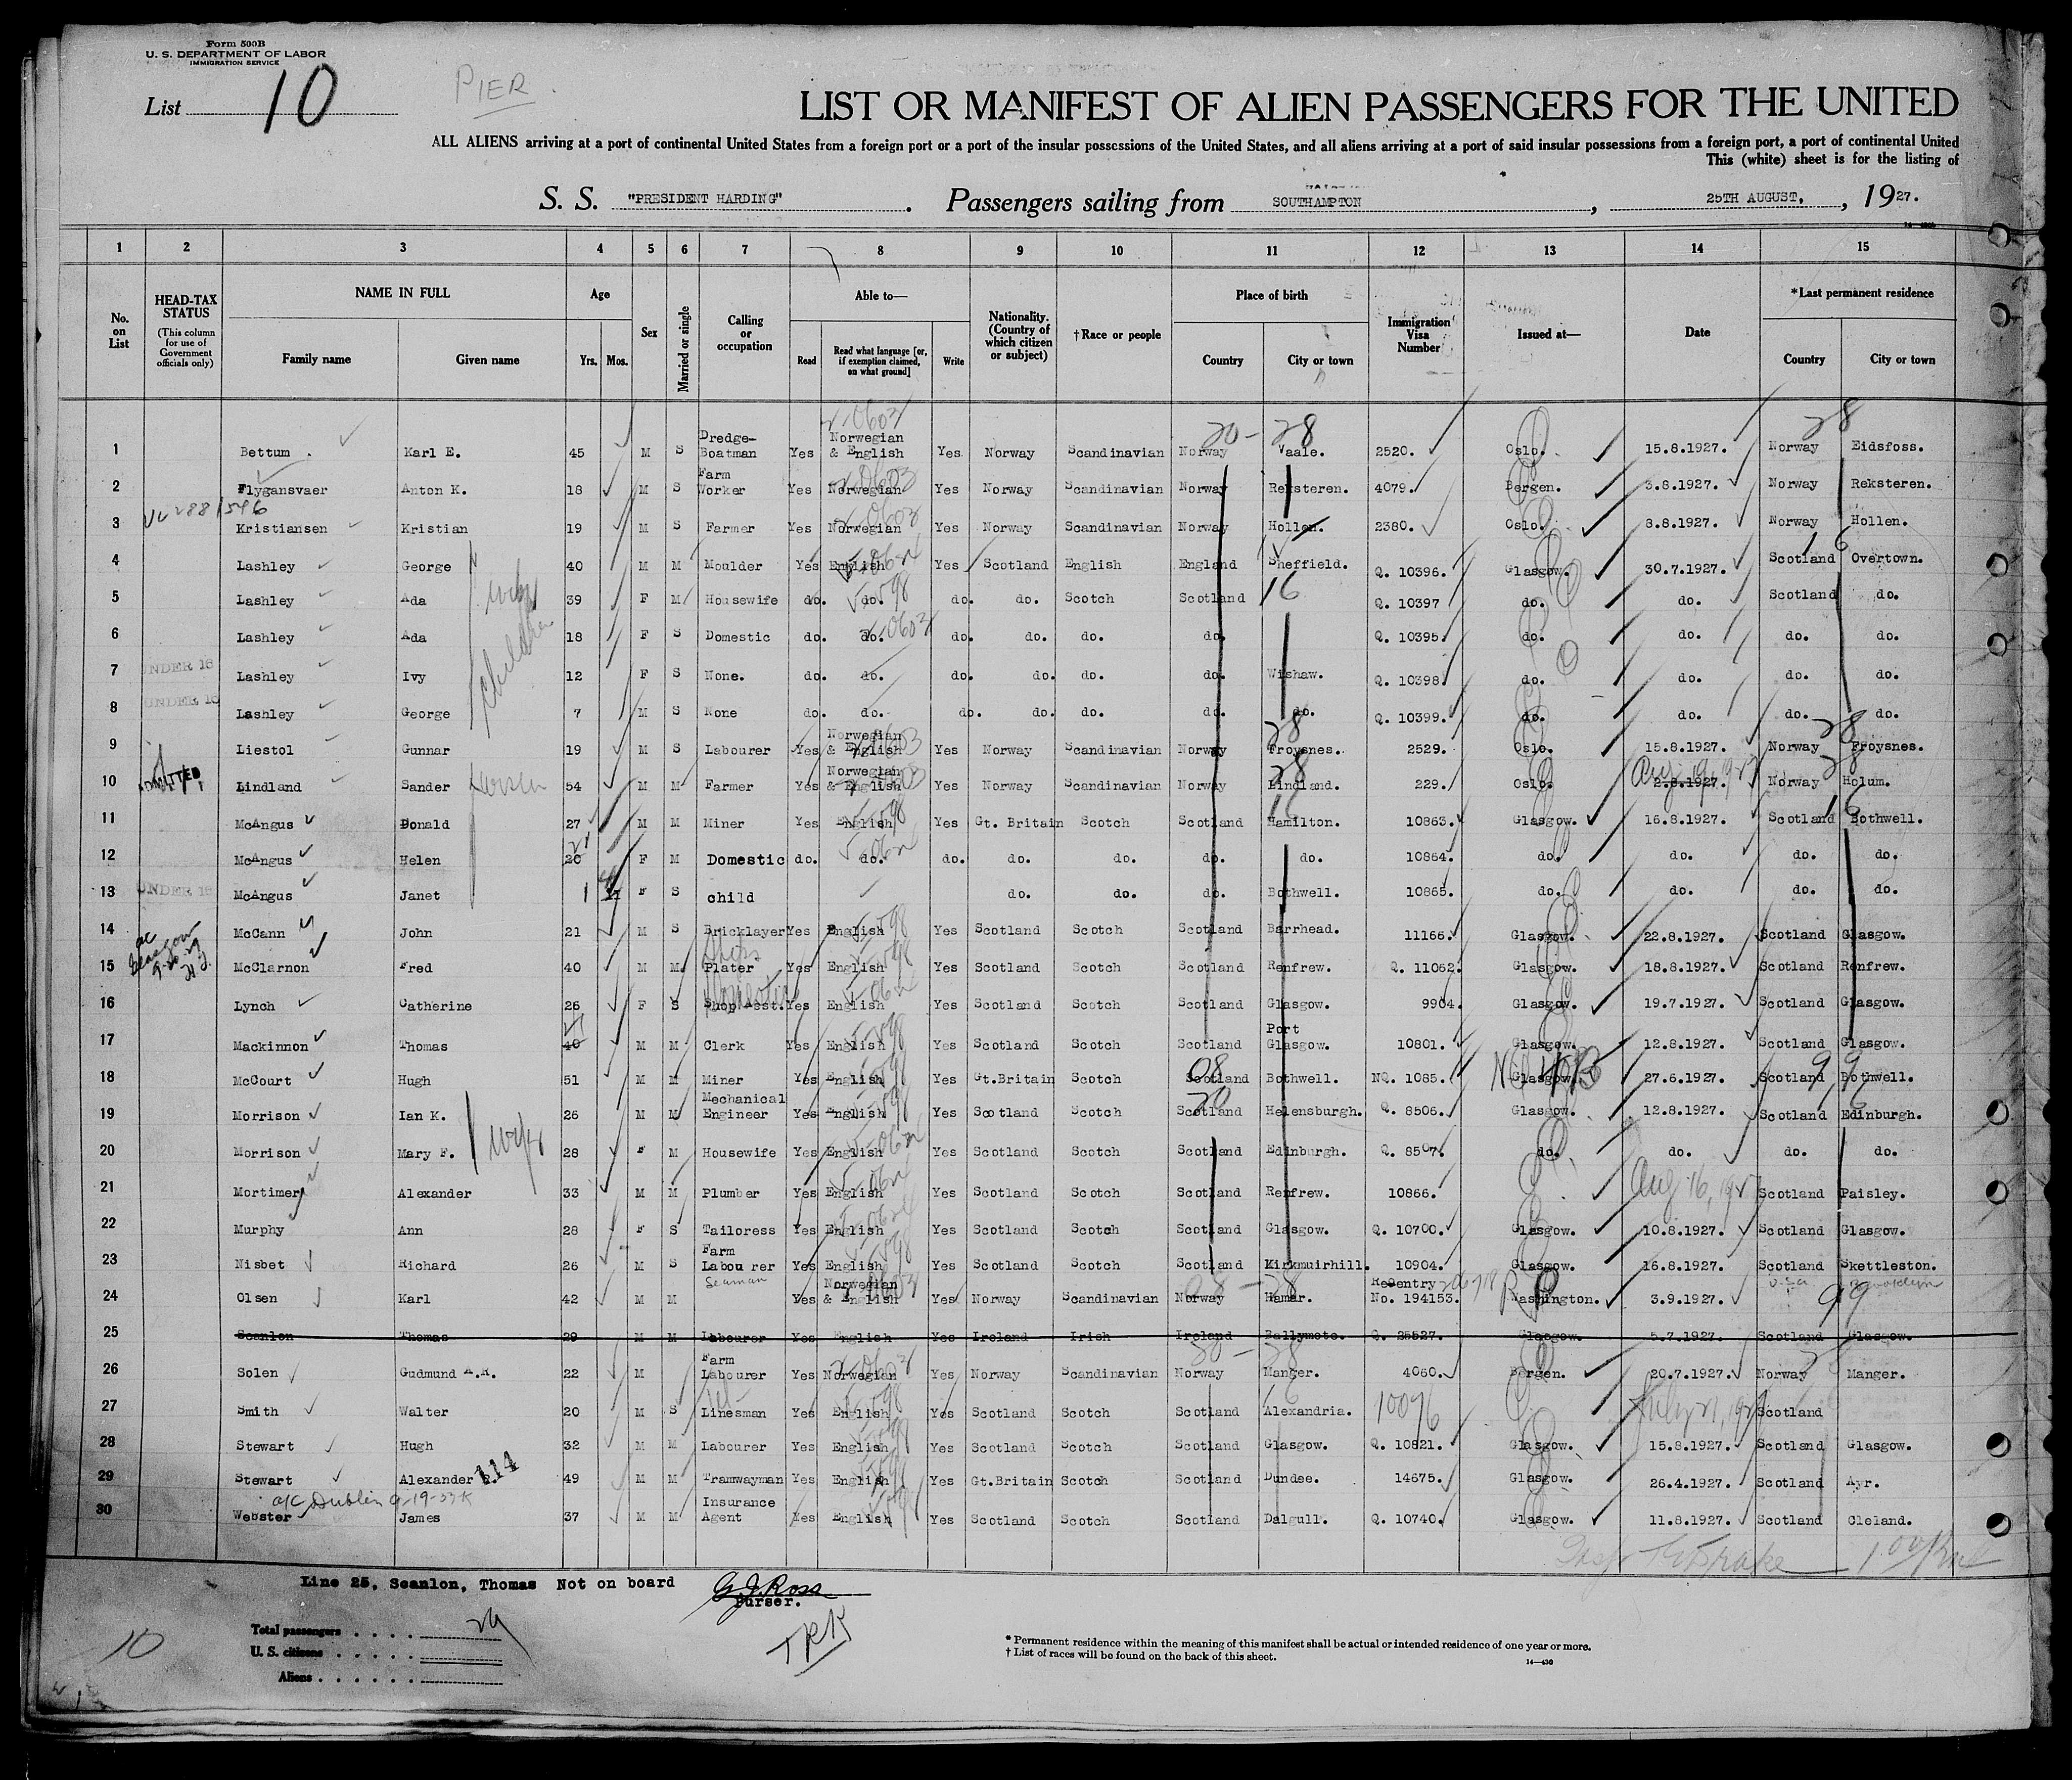 Form 500B
U. S. DEPARTMENT OF LABOR
IMMIGRATION SERVICE
List 10
PIER
LIST OR MANIFEST OF ALIEN PASSENGERS FOR THE UNITED
ALL ALIENS arriving at a port of continental United States from a foreign port or a port of the insular possessions of the United States, and all aliens arriving at a port of said insular possessions from a foreign port, a port of continental United
This (white) sheet is for the listing of
S. S. "PRESIDENT HARDING". Passengers sailing from SOUTHAMPTON, 25TH AUGUST, 1927.
1 2 3 4 5 6 7 8 9 10 11 12 13 14 15
No. on List
HEAD-TAX STATUS
(This column for use of Government officials only)
NAME IN FULL
Family name Given name
Age
Yrs. Mos.
Sex
Married or single
Calling or occupation
Able to—
Read
Read what language [or, if exemption claimed, on what ground]
Write
Nationality. (Country of which citizen or subject)
†Race or people
Place of birth
Country City or town
Immigration Visa Number
Issued at—
Date
*Last permanent residence
Country City or town
1 Bettum. Karl E. 45 M S Dredge-Boatman Yes Norwegian & English Yes Norway Scandinavian Norway Vaale. 2520. Oslo. 15.8.1927. Norway Eidsfoss.
2 Flygansvaer Anton K. 18 M S Farm Worker Yes Norwegian Yes Norway Scandinavian Norway Reksteren. 4079. Bergen. 3.8.1927. Norway Reksteren.
3 Kristiansen Kristian 19 M S Farmer Yes Norwegian Yes Norway Scandinavian Norway Hollen. 2380. Oslo. 8.8.1927. Norway Hollen.
4 Lashley George 40 M M Moulder Yes English Yes Scotland English England Sheffield. Q. 10396. Glasgow. 30.7.1927. Scotland Overtown.
5 Lashley Ada wife 39 F M Housewife do. do. do. do. Scotch Scotland 16 Q. 10397 do. do. Scotland do.
6 Lashley Ada children 18 F S Domestic do. do. do. do. do. do. Q. 10395. do. do. do. do.
7 UNDER 16 Lashley Ivy 12 F S None. do. do. do. do. do. do. Wishaw. Q. 10398. do. do. do. do.
8 UNDER 16 Lashley George 7 M S None do. do. do. do. do. do. do. Q. 10399. do. do. do. do.
9 Liestol Gunnar 19 M S Labourer Yes Norwegian & English Yes Norway Scandinavian Norway Froysnes. 2529. Oslo. 15.8.1927. Norway Froysnes.
10 ADMITTED Lindland Sander 54 M M Farmer Yes Norwegian & English Yes Norway Scandinavian Norway Lindland. 229. Oslo. 2.8.1927. Aug 19, 1927 Norway Holum.
11 McAngus Donald 27 M M Miner Yes English Yes Gt. Britain Scotch Scotland Hamilton. 10863. Glasgow. 16.8.1927. Scotland Bothwell.
12 McAngus Helen 20 21 F M Domestic do. do. do. do. do. do. do. 10864. do. do. do. do.
13 UNDER 16 McAngus Janet 1 F S child do. do. do. Bothwell. 10865. do. do. do. do.
14 McCann John 21 M S Bricklayer Yes English Yes Scotland Scotch Scotland Barrhead. 11166. Glasgow. 22.8.1927. Scotland Glasgow.
15 McClarnon Fred 40 M M Plater Yes English Yes Scotland Scotch Scotland Renfrew. Q. 11052. Glasgow. 18.8.1927. Scotland Renfrew.
16 Lynch Catherine 26 F S Shop Asst. Yes English Yes Scotland Scotch Scotland Glasgow. 9904. Glasgow. 19.7.1927. Scotland Glasgow.
17 Mackinnon Thomas 40 M M Clerk Yes English Yes Scotland Scotch Scotland Port Glasgow. 10801. Glasgow. 12.8.1927. Scotland Glasgow.
18 McCourt Hugh 51 M M Miner Yes English Yes Gt.Britain Scotch Scotland Bothwell. NQ. 1085. Glasgow. 27.6.1927. Scotland Bothwell.
19 Morrison Ian K. 26 M M Mechanical Engineer Yes English Yes Scotland Scotch Scotland Helensburgh. Q. 8506. Glasgow. 12.8.1927. Scotland Edinburgh.
20 Morrison Mary F. wife 28 F M Housewife Yes English Yes Scotland Scotch Scotland Edinburgh. Q. 8507. do. do. do. do.
21 Mortimer Alexander 33 M M Plumber Yes English Yes Scotland Scotch Scotland Renfrew. 10866. Aug 16, 1927 Scotland Paisley.
22 Murphy Ann 28 F S Tailoress Yes English Yes Scotland Scotch Scotland Glasgow. Q. 10700. Glasgow. 10.8.1927. Scotland Glasgow.
23 Nisbet Richard 26 M S Farm Labourer Yes English Yes Scotland Scotch Scotland Kirkmuirhill. 10904. Glasgow. 16.8.1927. Scotland Skettleston.
24 Olsen Karl 42 M M Seaman Yes Norwegian & English Yes Norway Scandinavian Norway Hamar. ReEntry No. 194153. Washington. 3.9.1927. U.S.A Brooklyn 99
25 Scanlon Thomas 29 M M Labourer Yes English Yes Ireland Irish Ireland Ballymote. Q. 25527. Glasgow. 5.7.1927. Scotland Glasgow.
26 Solen Gudmund A.R. 22 M Farm Labourer Yes Norwegian Yes Norway Scandinavian Norway Manger. 4060. Bergen. 20.7.1927. Norway Manger.
27 Smith Walter 20 M S Linesman Yes English Yes Scotland Scotch Scotland Alexandria. 10096 July 21, 1927 Scotland
28 Stewart Hugh 32 M M Labourer Yes English Yes Scotland Scotch Scotland Glasgow. Q. 10821. Glasgow. 15.8.1927. Scotland Glasgow.
29 Stewart Alexander R. 114 49 M M Tramwayman Yes English Yes Gt.Britain Scotch Scotland Dundee. 14675. Glasgow. 26.4.1927. Scotland Ayr.
30 Webster James 37 M M Insurance Agent Yes English Yes Scotland Scotch Scotland Dalgull. Q. 10740. Glasgow. 11.8.1927. Scotland Cleland.
Line 25, Scanlon, Thomas Not on board
G.J. Ross
Purser.
Total passengers . . . . 29
U. S. citizens . . . . .
Aliens . . . . . .
10
TRK
* Permanent residence within the meaning of this manifest shall be actual or intended residence of one year or more.
† List of races will be found on the back of this sheet.
14—430